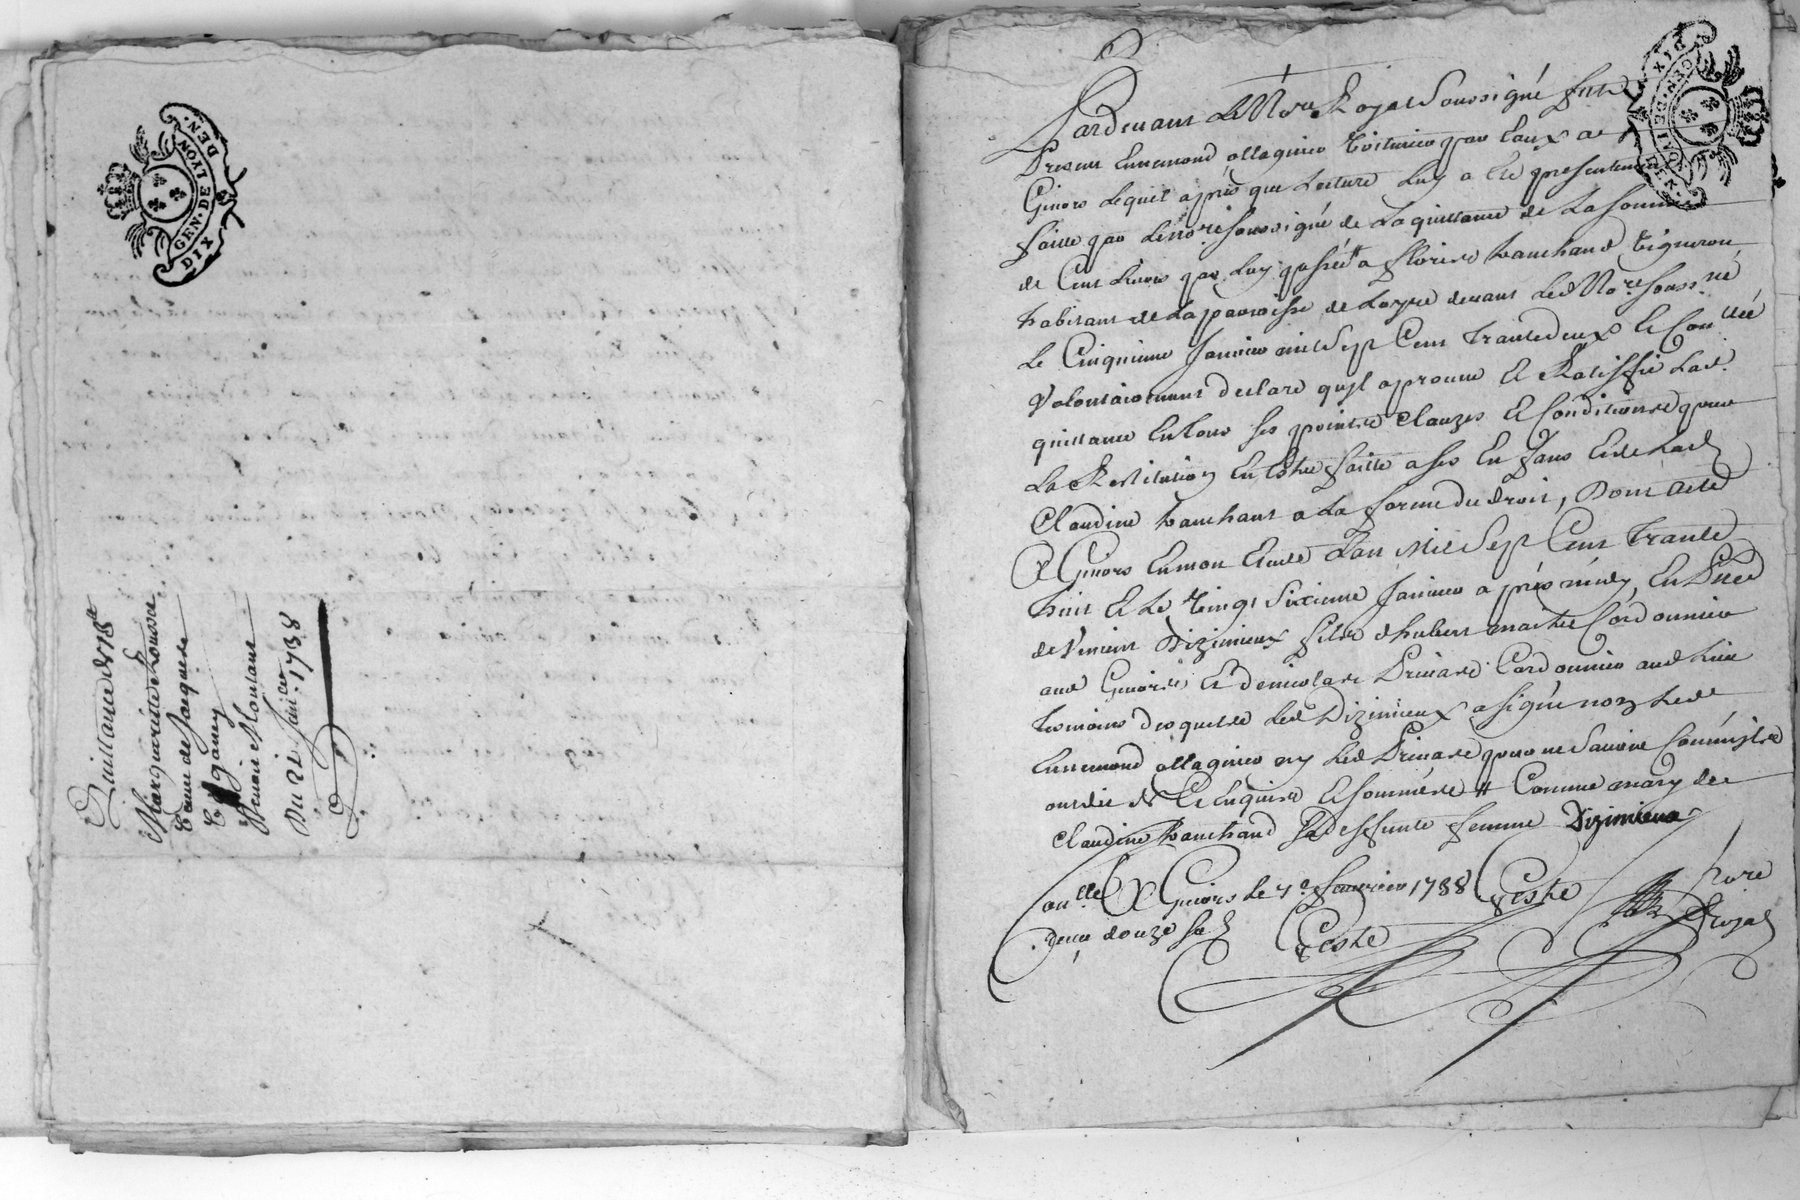 GEN. DE LYON.
DIX DEN.
Quittance de 78#
Marguerite Rousse
veuve de Jacques
Benoit Moulane
Du 22 Janvier 1738
GEN. DE
DIX DEN.
Pardevant Le No.re Royal Soussigné fut
Presant Ennemond ollagnier voiturier par Eaux de
Givors Lequel après que Lecture Luy a été presentement
faitte par Le no.re soussigné de La quittance de La somme
de Cent Livres par Luy passée a Vanchand Vigneron
habitant de La parroisse de Loyre devant Led No.re souss.né
Le Cinquieme Janvier mil Sept Cent Trante deux Et Con.llée
Volontairement declare quyl aprouve Et Ratiffie Lad.
quittance En tous ses points Clauzes Et Conditions pour
La Restitution En Estre faitte a ses Enfans Et de Lad
Claudine Vanchant a La forme du droit, Dont acte
A Givors En mon Etude L'an Mil Sept Cent Trante
huit Et Le Vingt Sixieme Janvier après midy, En Pnce
de Vincent Dizimieux fils d'hubert maitre Cordonnier
aud Givors, Et de nicolas Privas Cordonnier aud Lieu
temoins Lesquels Led Dizimieux a signé non Led
Ennemond ollagnier ny Led Privas pour ne Scavoir
de Ce Enquis Et sommés # Comme mary de
Claudine Vanchand Sa deffunte femme Dizimieux
Con.llé A Givors Le 7.e fevrier 1738 Teste
Reçu douze sols Teste no.re
Royal